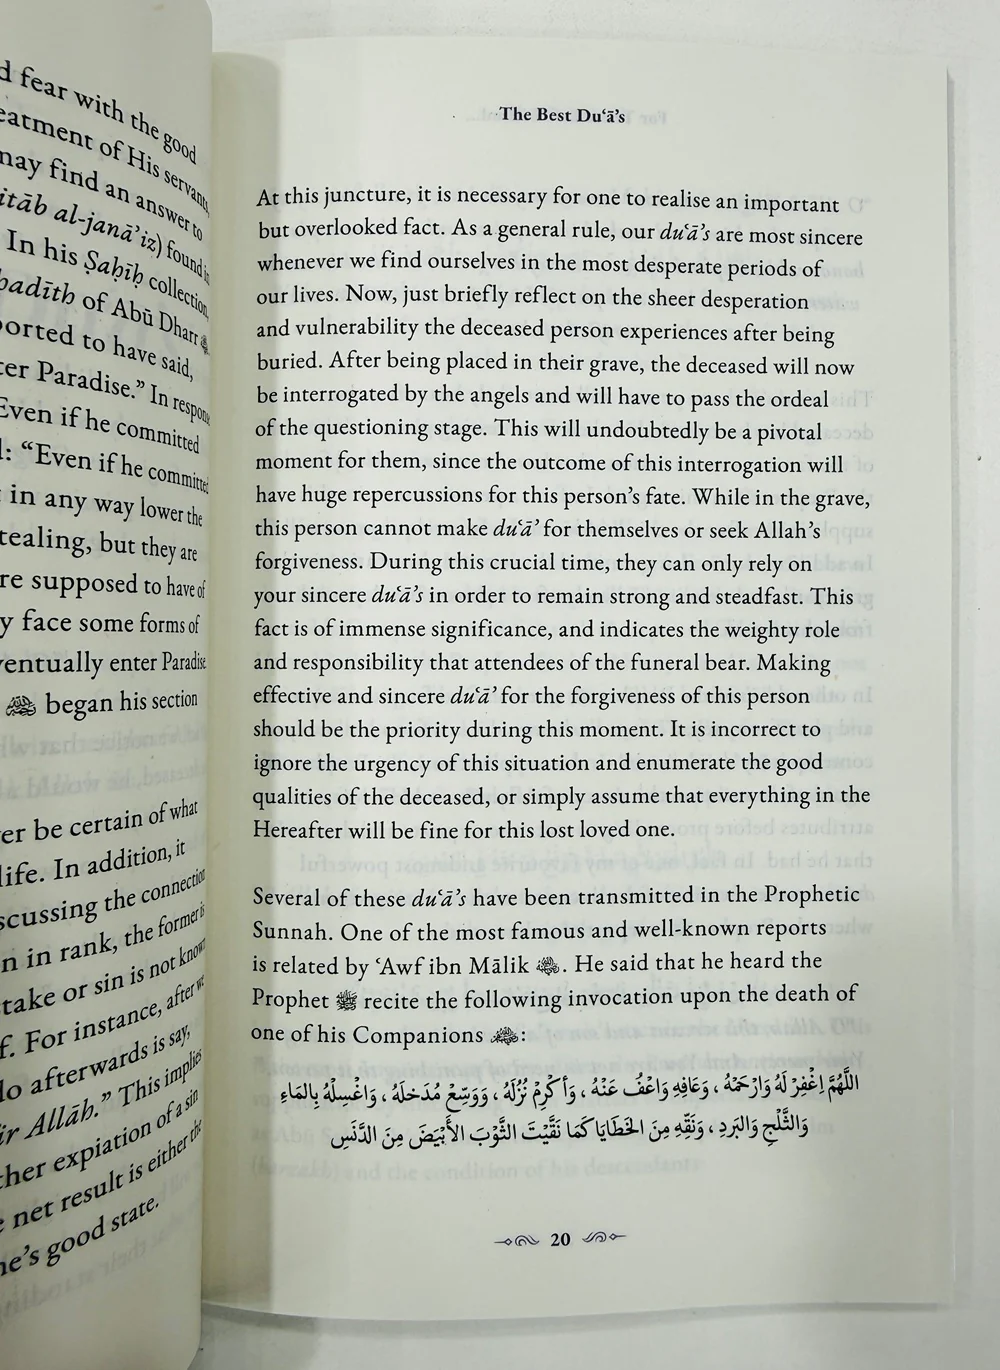 d fear with the good
eatment of His servants,
may find an answer to
itāb al-janā'iz) found in
In his Ṣaḥīḥ collection,
ḥadīth of Abū Dharr
ported to have said,
ter Paradise.” In response
Even if he committed
l: “Even if he committed
in any way lower the
tealing, but they are
re supposed to have of
y face some forms of
ventually enter Paradise
ﷺ began his section
er be certain of what
life. In addition, it
scussing the connection
n in rank, the former is
take or sin is not known
f. For instance, after we
lo afterwards is say,
ir Allāh.” This implies
ther expiation of a sin
e net result is either the
ne’s good state.
The Best Du‘ā’s
At this juncture, it is necessary for one to realise an important
but overlooked fact. As a general rule, our du‘ā’s are most sincere
whenever we find ourselves in the most desperate periods of
our lives. Now, just briefly reflect on the sheer desperation
and vulnerability the deceased person experiences after being
buried. After being placed in their grave, the deceased will now
be interrogated by the angels and will have to pass the ordeal
of the questioning stage. This will undoubtedly be a pivotal
moment for them, since the outcome of this interrogation will
have huge repercussions for this person’s fate. While in the grave,
this person cannot make du‘ā’ for themselves or seek Allah’s
forgiveness. During this crucial time, they can only rely on
your sincere du‘ā’s in order to remain strong and steadfast. This
fact is of immense significance, and indicates the weighty role
and responsibility that attendees of the funeral bear. Making
effective and sincere du‘ā’ for the forgiveness of this person
should be the priority during this moment. It is incorrect to
ignore the urgency of this situation and enumerate the good
qualities of the deceased, or simply assume that everything in the
Hereafter will be fine for this lost loved one.
Several of these du‘ā’s have been transmitted in the Prophetic
Sunnah. One of the most famous and well-known reports
is related by ‘Awf ibn Mālik. He said that he heard the
Prophet ﷺ recite the following invocation upon the death of
one of his Companions:
اللَّهُمَّ اِغْفِرْ لَهُ وَارْحَمْهُ ، وَعَافِهِ وَاعْفُ عَنْهُ ، وَأَكْرِمْ نُزُلَهُ ، وَوَسِّعْ مُدْخَلَهُ ، وَاغْسِلْهُ بِالمَاءِ
وَالثَّلْجِ وَالبَرَدِ ، وَنَقِّهِ مِنَ الخَطَايَا كَمَا نَقَّيْتَ الثَّوْبَ الأَبْيَضَ مِنَ الدَّنَسِ
20